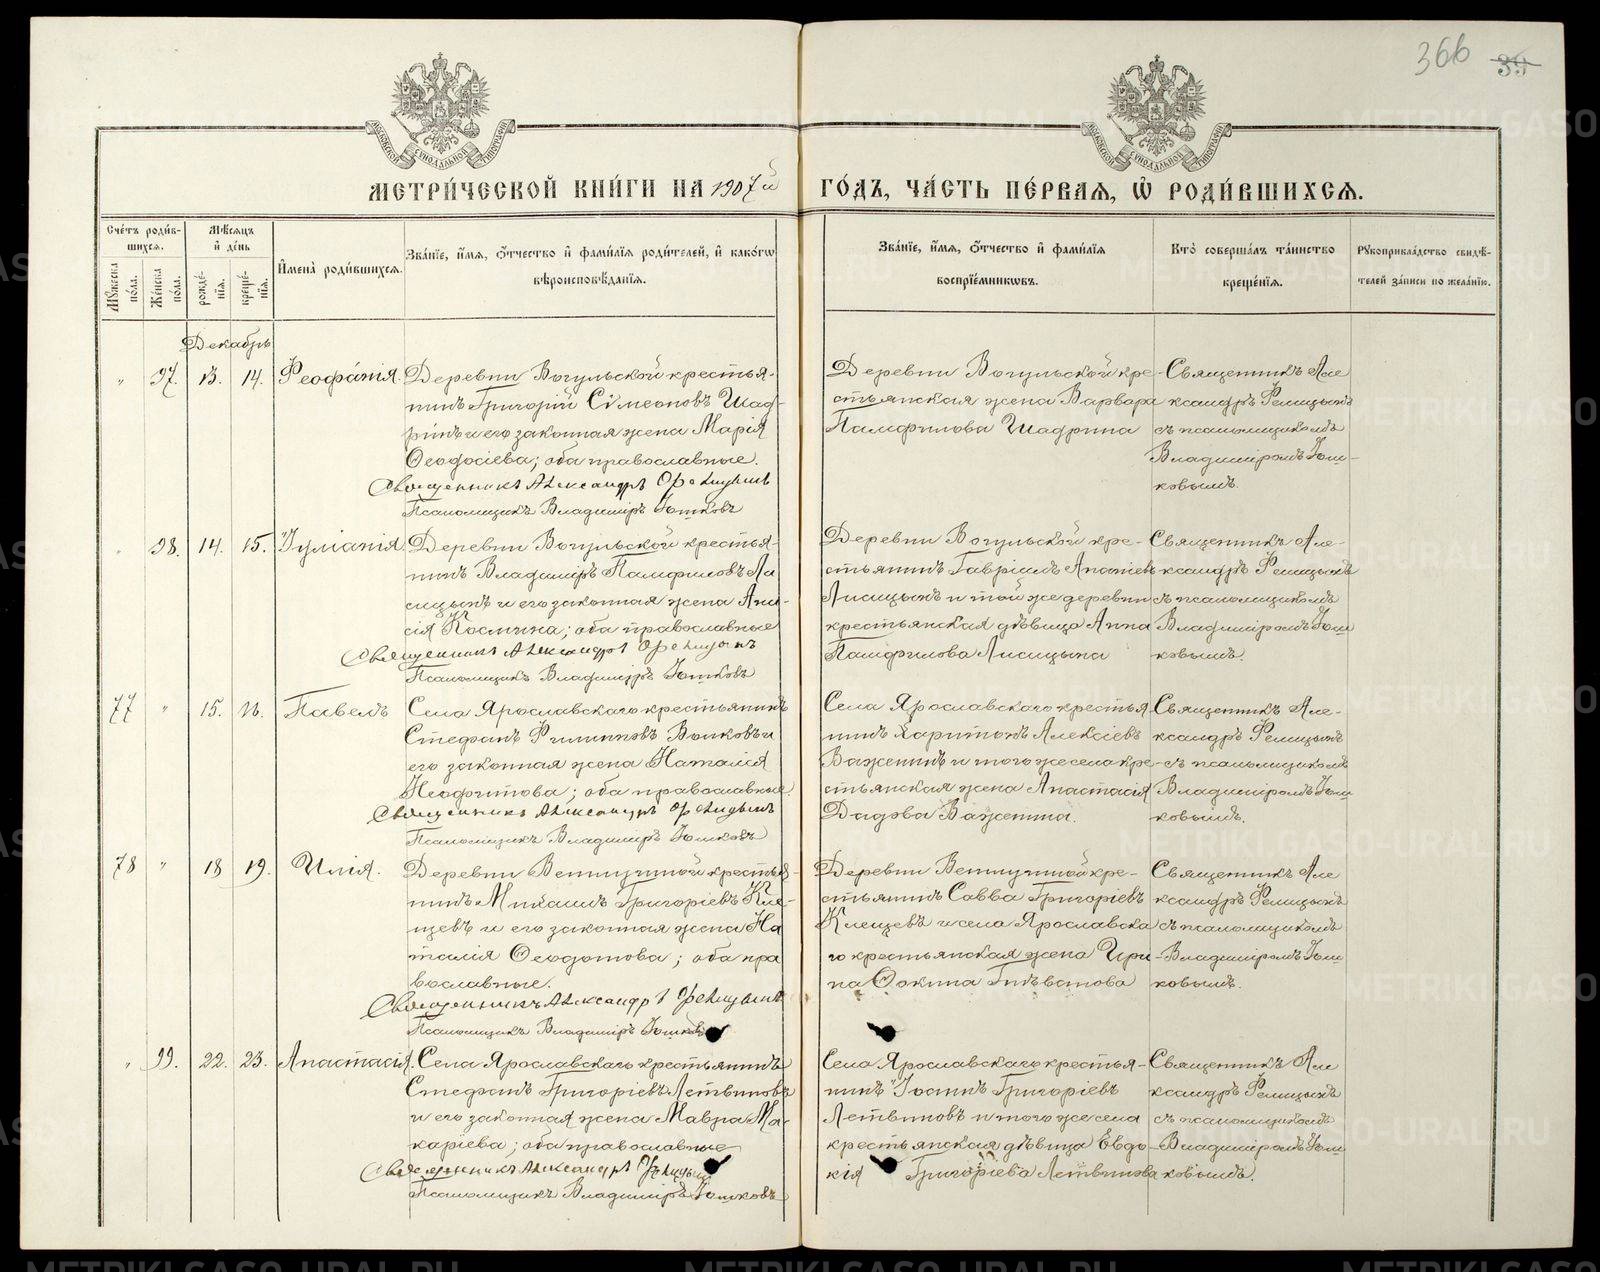 366 39
МОСКОВСКОЙ СѴНОДАЛЬНОЙ ТИПОГРАФІИ
МОСКОВСКОЙ СѴНОДАЛЬНОЙ ТИПОГРАФІИ
МЕТРИ́ЧЕСКОЙ КНИ́ГИ НА 1907й ГО́ДЪ, ЧА́СТЬ ПЕ́РВАЯ, Ѡ҆ РОДИ́ВШИХСЯ.
Сче́тъ роди́в-
шихся.
Мꙋ́жеска по́ла.
Же́нска по́ла.
Мѣ́сяцъ
и҆ де́нь
рожде́-
нїя.
креще́-
нїя.
И҆мена̀ роди́вшихся.
Зва́нїе, и҆́мя, ѻ҆́тчество и҆ фами́лїя роди́телей, и҆ како́гѡ
вѣроисповѣ́данїя.
Зва́нїе, и҆́мя, ѻ҆́тчество и҆ фами́лїя
воспрїе́мникѡвъ.
Кто̀ соверша́лъ та́инство
креще́нїя.
Рꙋкоприкла́дство свидѣ́-
телей за́писи по жела́нїю.
Декабрь
" 97. 13. 14. Феофанія.
Деревни Вогульской крестья-
нинъ Григорій Сѵмеоновъ Шад-
ринъ и его законная жена Марія
Ѳеодосіева; оба православные.
Священникъ Александръ
Псаломщикъ Владиміръ Юшковъ
Деревни Вогульской кре-
стьянская жена Варвара
Памфилова Шадрина
Священникъ Але
ксандръ
съ псаломщикомъ
Владиміромъ Юш-
ковымъ.
" 98. 14. 15. Іуліанія.
Деревни Вогульской крестья-
нинъ Владиміръ Памфиловъ Ли
сицынъ и его законная жена Ани-
сія Космина; оба православные
Священникъ Александръ
Псаломщикъ Владиміръ Юшковъ
Деревни Вогульской кре-
стьянинъ Гавріилъ
Лисицынъ и той же деревни
крестьянская дѣвица Анна
Памфилова Лисицына
Священникъ Але-
ксандръ
съ псаломщикомъ
Владиміромъ Юш
ковымъ.
77 " 15. 16. Павелъ
Села Ярославскаго крестьянинъ
Стефанъ Филипповъ Волковъ и
его законная жена Наталія
Неофитова; оба православные.
Священникъ Александръ
Псаломщикъ Владиміръ Юшковъ
Села Ярославскаго крестья
нинъ Харитонъ Алексіевъ
Важенинъ и того же села кре-
стьянская жена Анастасія
Важенина.
Священникъ Але-
ксандръ
съ псаломщикомъ
Владиміромъ Юш
ковымъ.
78 " 18 19. Илія.
Деревни крестья-
нинъ Михаилъ Григоріевъ Кле-
щевъ и его законная жена На
талія Ѳеодотова; оба пра
вославные.
Священникъ Александръ
Псаломщикъ Владиміръ Юшковъ
Деревни кре-
стьянинъ Савва Григоріевъ
Клещевъ и села Ярославска
го крестьянская жена Ири
на Фокина
Священникъ Але
ксандръ
съ псаломщикомъ
Владиміромъ Юш
ковымъ.
" 99. 22. 23. Анастасія.
Села Ярославскаго крестьянинъ
Стефанъ Григоріевъ Летвиновъ
и его законная жена Мавра Ма-
каріева; оба православные
Священникъ Александръ
Псаломщикъ Владиміръ Юшковъ
Села Ярославскаго крестья-
нинъ Іоаннъ Григоріевъ
Летвиновъ и того же села
крестьянская дѣвица Евдо
кія Григоріева Летвинова
Священникъ Але
ксандръ
съ псаломщикомъ
Владиміромъ Юш
ковымъ.
METRIKI.GASO-URAL.RU